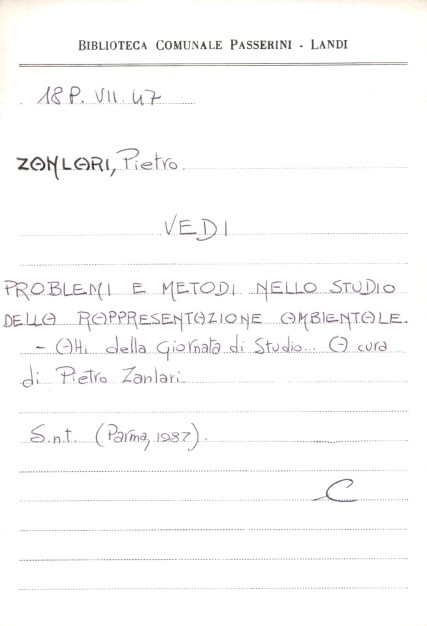 BIBLIOTECA COMUNALE PASSERINI - LANDI
18 P. VII. 47
ZANLARI, Pietro.
VEDI
PROBLEMI E METODI NELLO STUDIO
DELLA RAPPRESENTAZIONE AMBIENTALE.
- Atti della Giornata di Studio... A cura
di Pietro Zanlari.
S.n.t. (Parma, 1987).
C